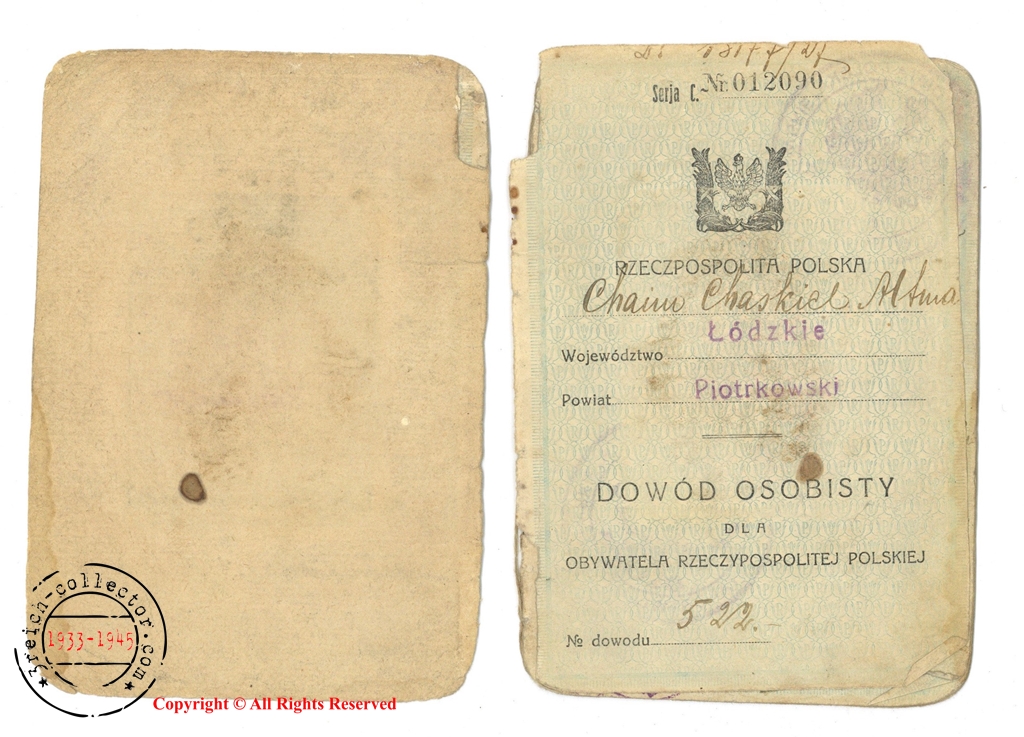 Serja C. № 012090
RZECZPOSPOLITA POLSKA
Chaim Chaskiel Altma
Łódzkie
Województwo
Piotrkowski
Powiat
DOWÓD OSOBISTY
DLA
OBYWATELA RZECZYPOSPOLITEJ POLSKIEJ
522.-
№ dowodu
3reich-collector.com
1933-1945
Copyright © All Rights Reserved